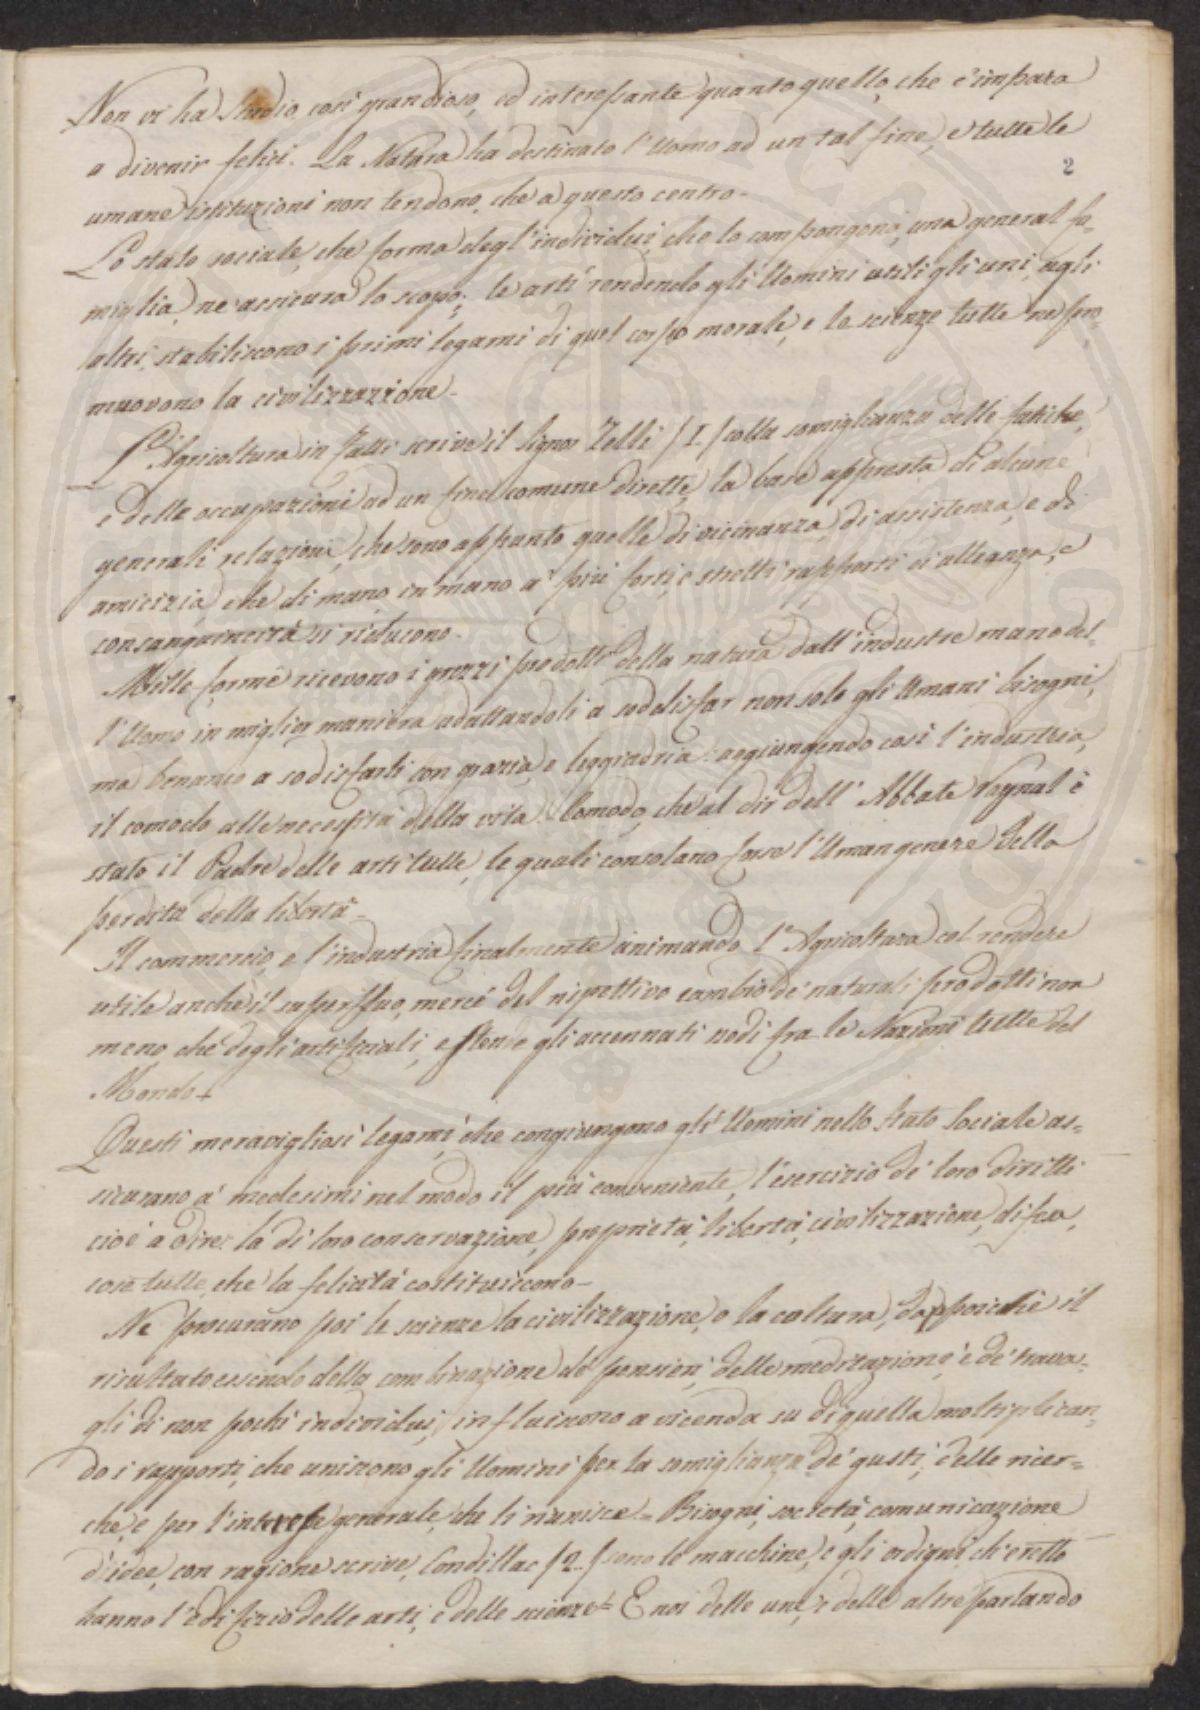 Non vi ha studio così grandioso, ed interessante quanto quello, che c'impara
a divenir felici. La Natura ha destinato l'Uomo ad un tal fine, e tutte le
2
umane istituzioni non tendono, che a questo centro.
Lo stato sociale, che forma degl'individui, che lo compongono, una general fa-
miglia, ne assicura lo scopo; le arti rendendo gli Uomini utili gli uni, agli
altri, stabiliscono i primi legami di quel corpo morale, e le scienze tutte ne pro-
muovono la civilizzazione.
L'Agricoltura in fatti scrive il Signor Zelli /1/ colla somiglianza delle fatiche,
e delle occupazioni ad un fine comune dirette, la base appresta di alcune
generali relazioni, che sono appunto quelle di vicinanza, di assistenza, e di
amicizia, che di mano in mano a' più forti, e stretti rapporti di alleanza, e
consanguineità si riducono.
Mille forme ricevono i grezzi prodotti della natura dall'industre mano del-
l'Uomo in miglior maniera adattandoli a sodisfar non solo gli Umani bisogni,
ma benanco a sodisfarli con grazia, e leggiadria: aggiungendo così l'industria,
il comodo alle necessità della vita. Comodo, che al dir dell' Abbate Raynal è
stato il Padre delle arti tutte, le quali consolano forse l'Uman genere della
perdita della libertà.
Il commercio, e l'industria finalmente animando l'Agricoltura col rendere
utile anche il superfluo, mercé del rispettivo cambio de' naturali prodotti non
meno, che degli artificiali, estende gli accennati nodi fra le Nazioni tutte del
Mondo.
Questi meravigliosi legami, che congiungono gli Uomini nello stato sociale as-
sicurano a' medesimi nel modo il più conveniente, l'esercizio de' loro diritti
cioè a dire: la di loro conservazione, proprietà, libertà, civilizzazione, difesa,
cose tutte, che la felicità costituiscono.
Ne procurano poi le scienze la civilizzazione, e la coltura, dappoichè il
risultato essendo della combinazione de' pensieri, delle meditazioni, e de' trava-
gli di non pochi individui, influiscono a vicenda su di quella moltiplican-
do i rapporti, che uniscono gli Uomini per la somiglianza de' gusti, delle ricer-
che, e per l'interesse generale, che li riunisce = Bisogni, società, comunicazione
d'idee, con ragione scrive, Condillac /2./ sono le macchine, e gli ordigni, ch'eretto
hanno l'edifizio delle arti, e delle scienze = E noi delle une, e delle altre parlando